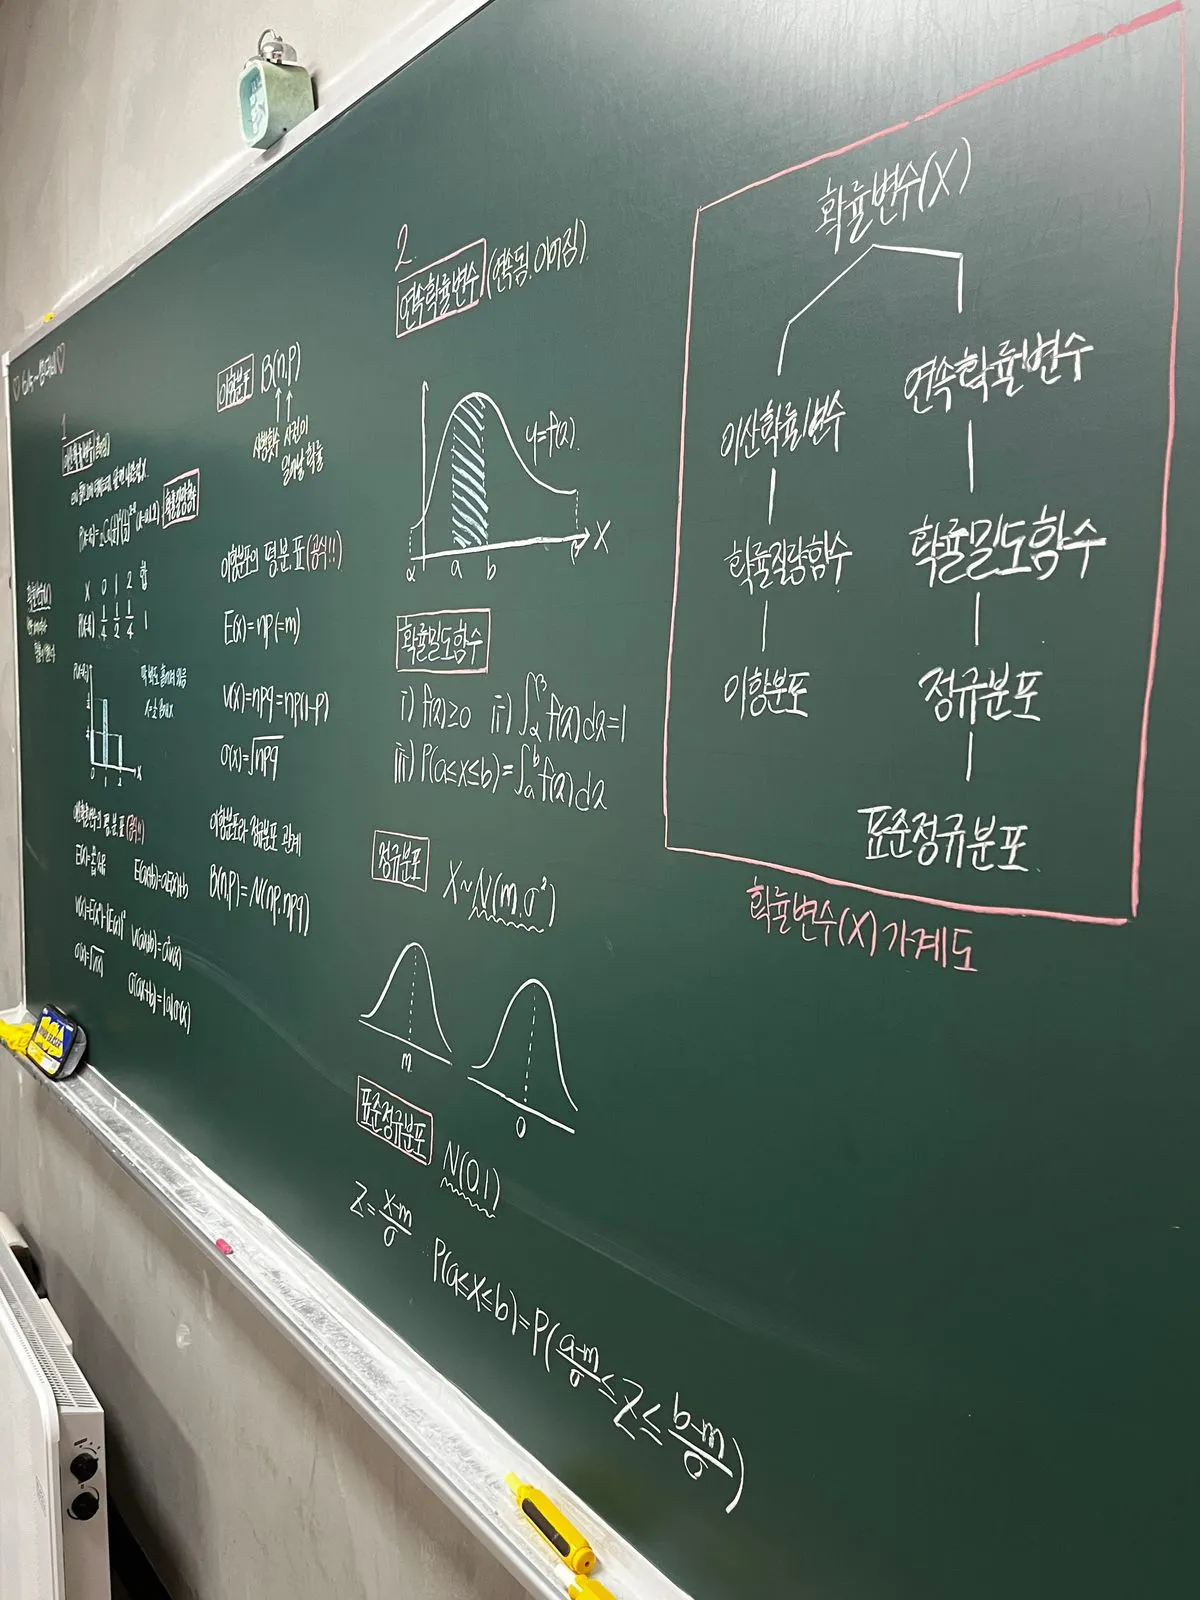 1
이산확률변수(흩어짐)
확률질량함수
X 0 1 2 합
P(X=x) 1/4 1/2 1/4 1
P(X=x)
0 1 2 X
이산확률변수의 평.분.표(공식!!)
E(aX+b)=aE(X)+b
V(X)=E(X²)-{E(X)}² V(aX+b)=a²V(X)
σ(X)=√V(X)
σ(aX+b)=|a|σ(X)
이항분포 B(n,P)
시행횟수 사건이
일어날 확률
이항분포의 평.분.표(공식!!)
E(X)=np(=m)
V(X)=npq=np(1-p)
σ(X)=√npq
이항분포와 정규분포 관계
B(n,P)=N(np,npq)
2.
연속확률변수 (연속됨,이어짐)
y=f(x)
α a b β X
확률밀도함수
i) f(x)≥0 ii) ∫_α^β f(x)dx=1
iii) P(a≤X≤b)=∫_a^b f(x)dx
정규분포 X~N(m,σ²)
m
0
표준정규분포 N(0,1)
Z=(X-m)/σ
P(a≤X≤b)=P((a-m)/σ≤Z≤(b-m)/σ)
확률변수(X)
이산확률변수 연속확률변수
확률질량함수 확률밀도함수
이항분포 정규분포
표준정규분포
확률변수(X) 가계도